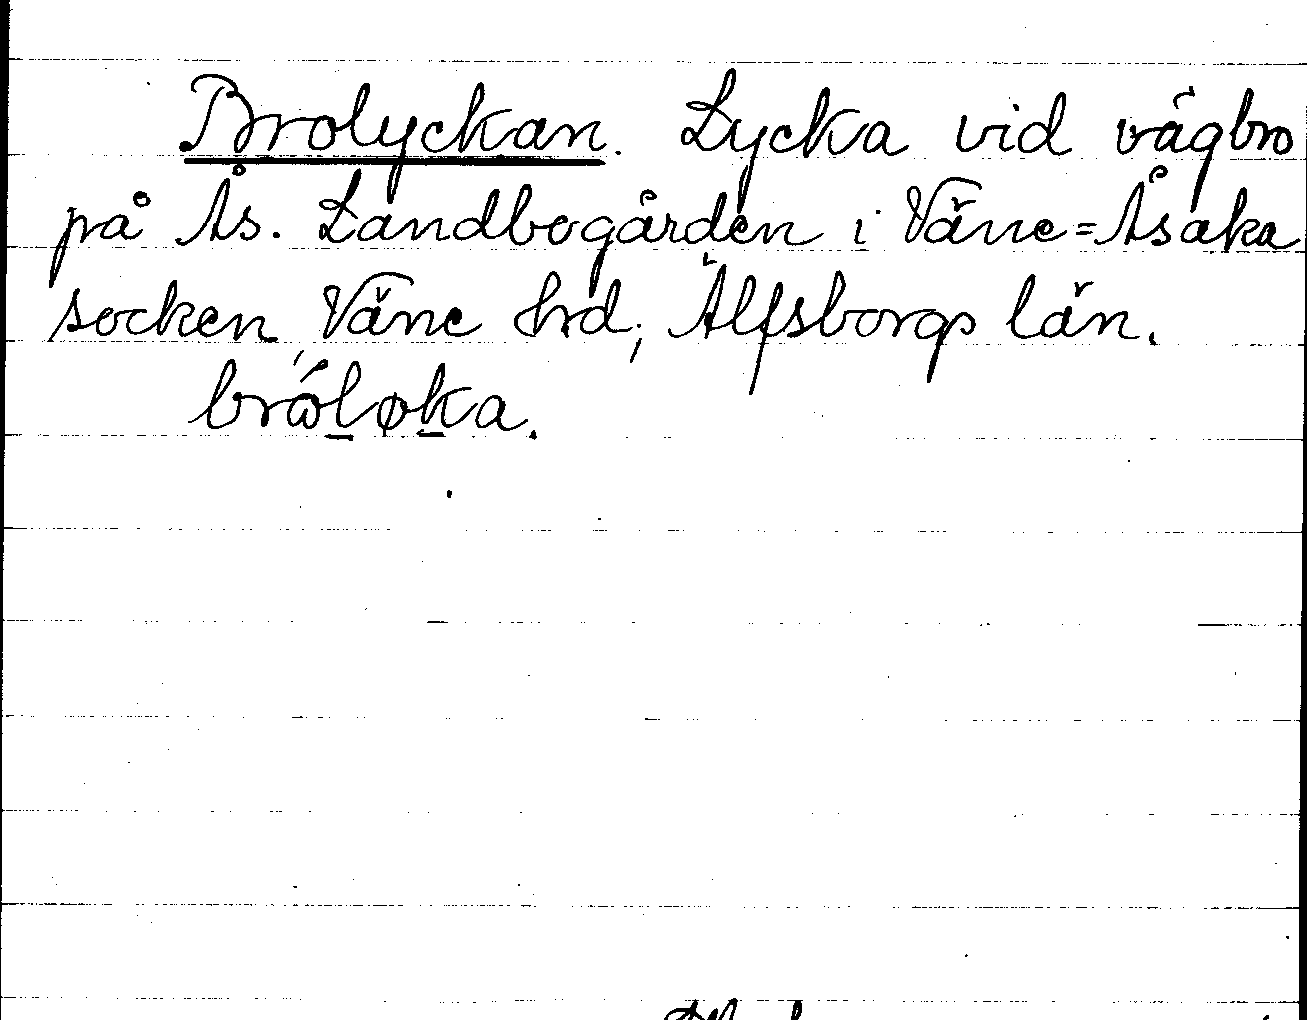 Brolyckan. Lycka vid vägbro
på Ås. Landbogården i Väne=Åsaka
socken, Väne hrd; Älfsborgs län.